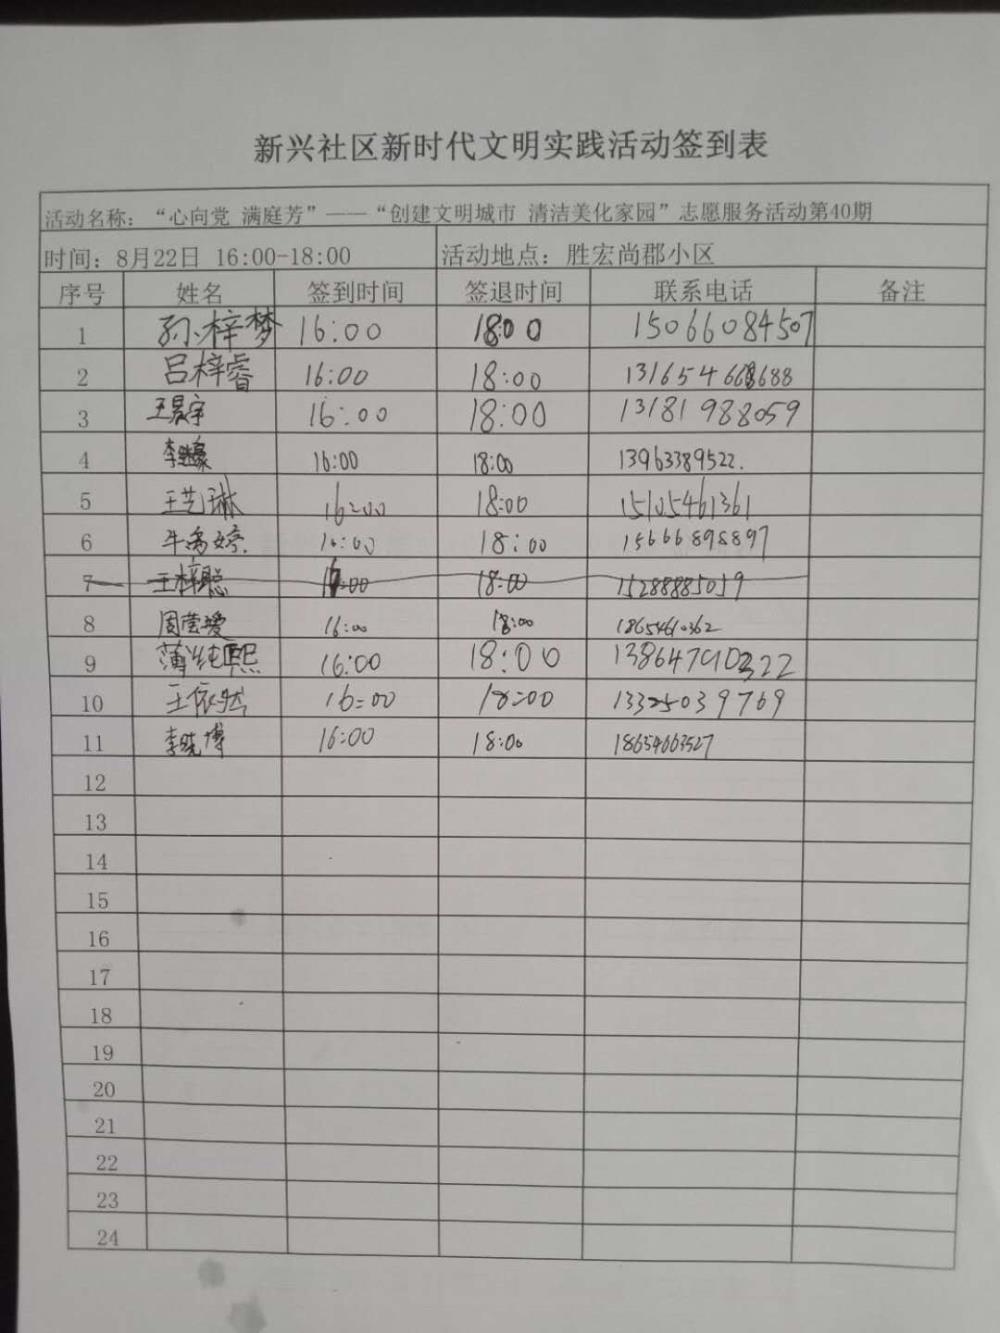 新兴社区新时代文明实践活动签到表
活动名称：“心向党 满庭芳”——“创建文明城市 清洁美化家园”志愿服务活动第40期
时间：8月22日 16:00-18:00 活动地点：胜宏尚郡小区
序号 姓名 签到时间 签退时间 联系电话 备注
1 孙梓梦 16:00 18:00 15066084507
2 吕梓睿 16:00 18:00
3 王晨宇 16:00 18:00 13181988059
4 16:00 18:00 13963389522.
5 王艺琳 16:00 18:00 15105461361
6 牛禹婷 16:00 18:00 15666898897
7 王梓聪 18:00 15288885059
8 周莹瑷 16:00 18:00 18654610362
9 薄纯熙 16:00 18:00
10 王依然 16:00 18:00 13325039769
11 李晓博 16:00 18:00 18654663527
12
13
14
15
16
17
18
19
20
21
22
23
24